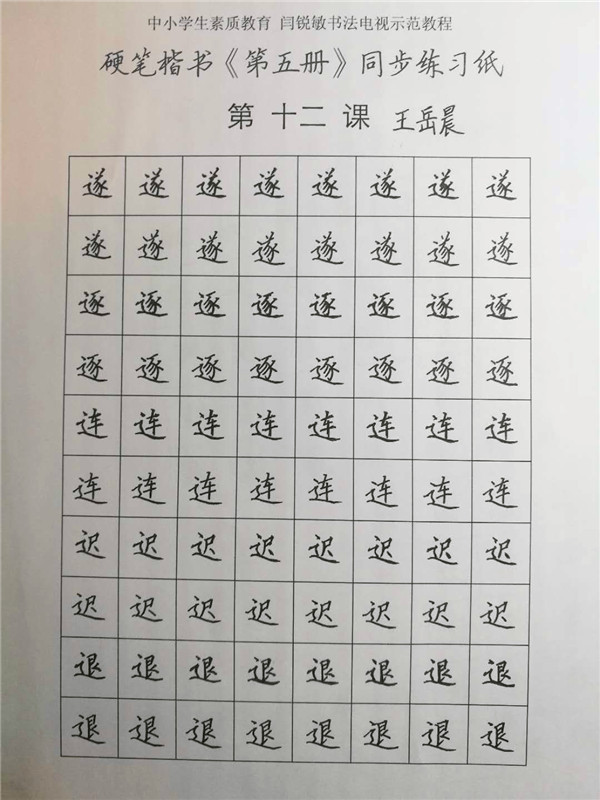 中小学生素质教育 闫锐敏书法电视示范教程
硬笔楷书《第五册》同步练习纸
第 十二 课 王岳晨
遂 遂 遂 遂 遂 遂 遂 遂
遂 遂 遂 遂 遂 遂 遂 遂
逐 逐 逐 逐 逐 逐 逐 逐
逐 逐 逐 逐 逐 逐 逐 逐
连 连 连 连 连 连 连 连
连 连 连 连 连 连 连 连
迟 迟 迟 迟 迟 迟 迟 迟
迟 迟 迟 迟 迟 迟 迟 迟
退 退 退 退 退 退 退 退
退 退 退 退 退 退 退 退